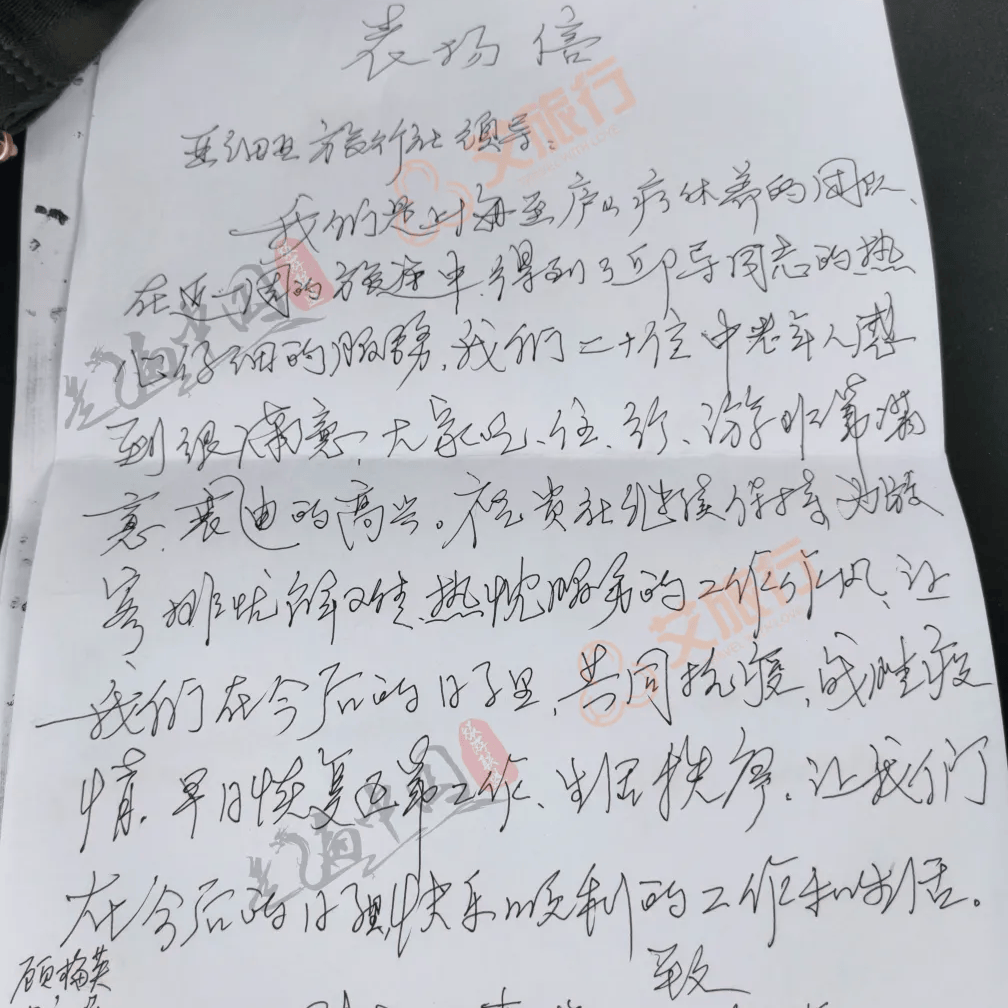 表扬信
亚细亚旅行社领导：
我们是上海至庐山疗休养的团队，
在近一周的旅途中，得到了邱导同志的热
心仔细的服务，我们二十位中老年人感
到很满意，大家吃、住、行、游非常满
意，衷心的高兴。祝贵社继续保持为旅
客排忧解难、热忱服务的工作作风，让
我们在今后的日子里，共同抗疫，战胜疫
情，早日恢复正常工作、生活秩序，让我们
在今后的日子里，快乐顺利的工作和生活。
致
顾梅英
艾旅行
艾旅行